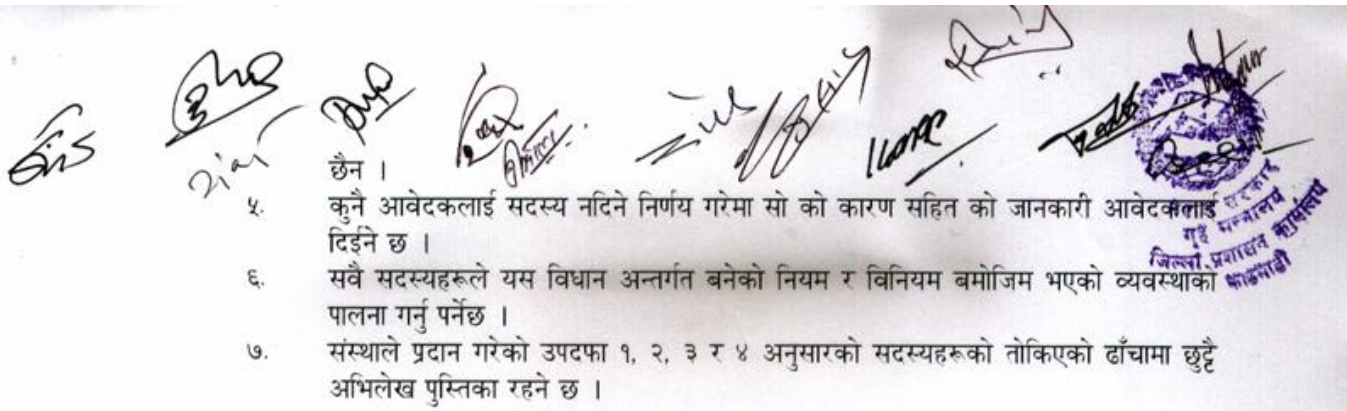 छैन ।
५. कुनै आवेदकलाई सदस्य नदिने निर्णय गरेमा सो को कारण सहित को जानकारी आवेदकलाई
दिईने छ ।
६. सवै सदस्यहरूले यस विधान अन्तर्गत बनेको नियम र विनियम बमोजिम भएको व्यवस्थाको
पालना गर्नु पर्नेछ ।
७. संस्थाले प्रदान गरेको उपदफा १, २, ३ र ४ अनुसारको सदस्यहरूको तोकिएको ढाँचामा छुट्टै
अभिलेख पुस्तिका रहने छ ।
सरकार
गृह मन्त्रालय
जिल्ला प्रशासन कार्यालय
काठमाडौं